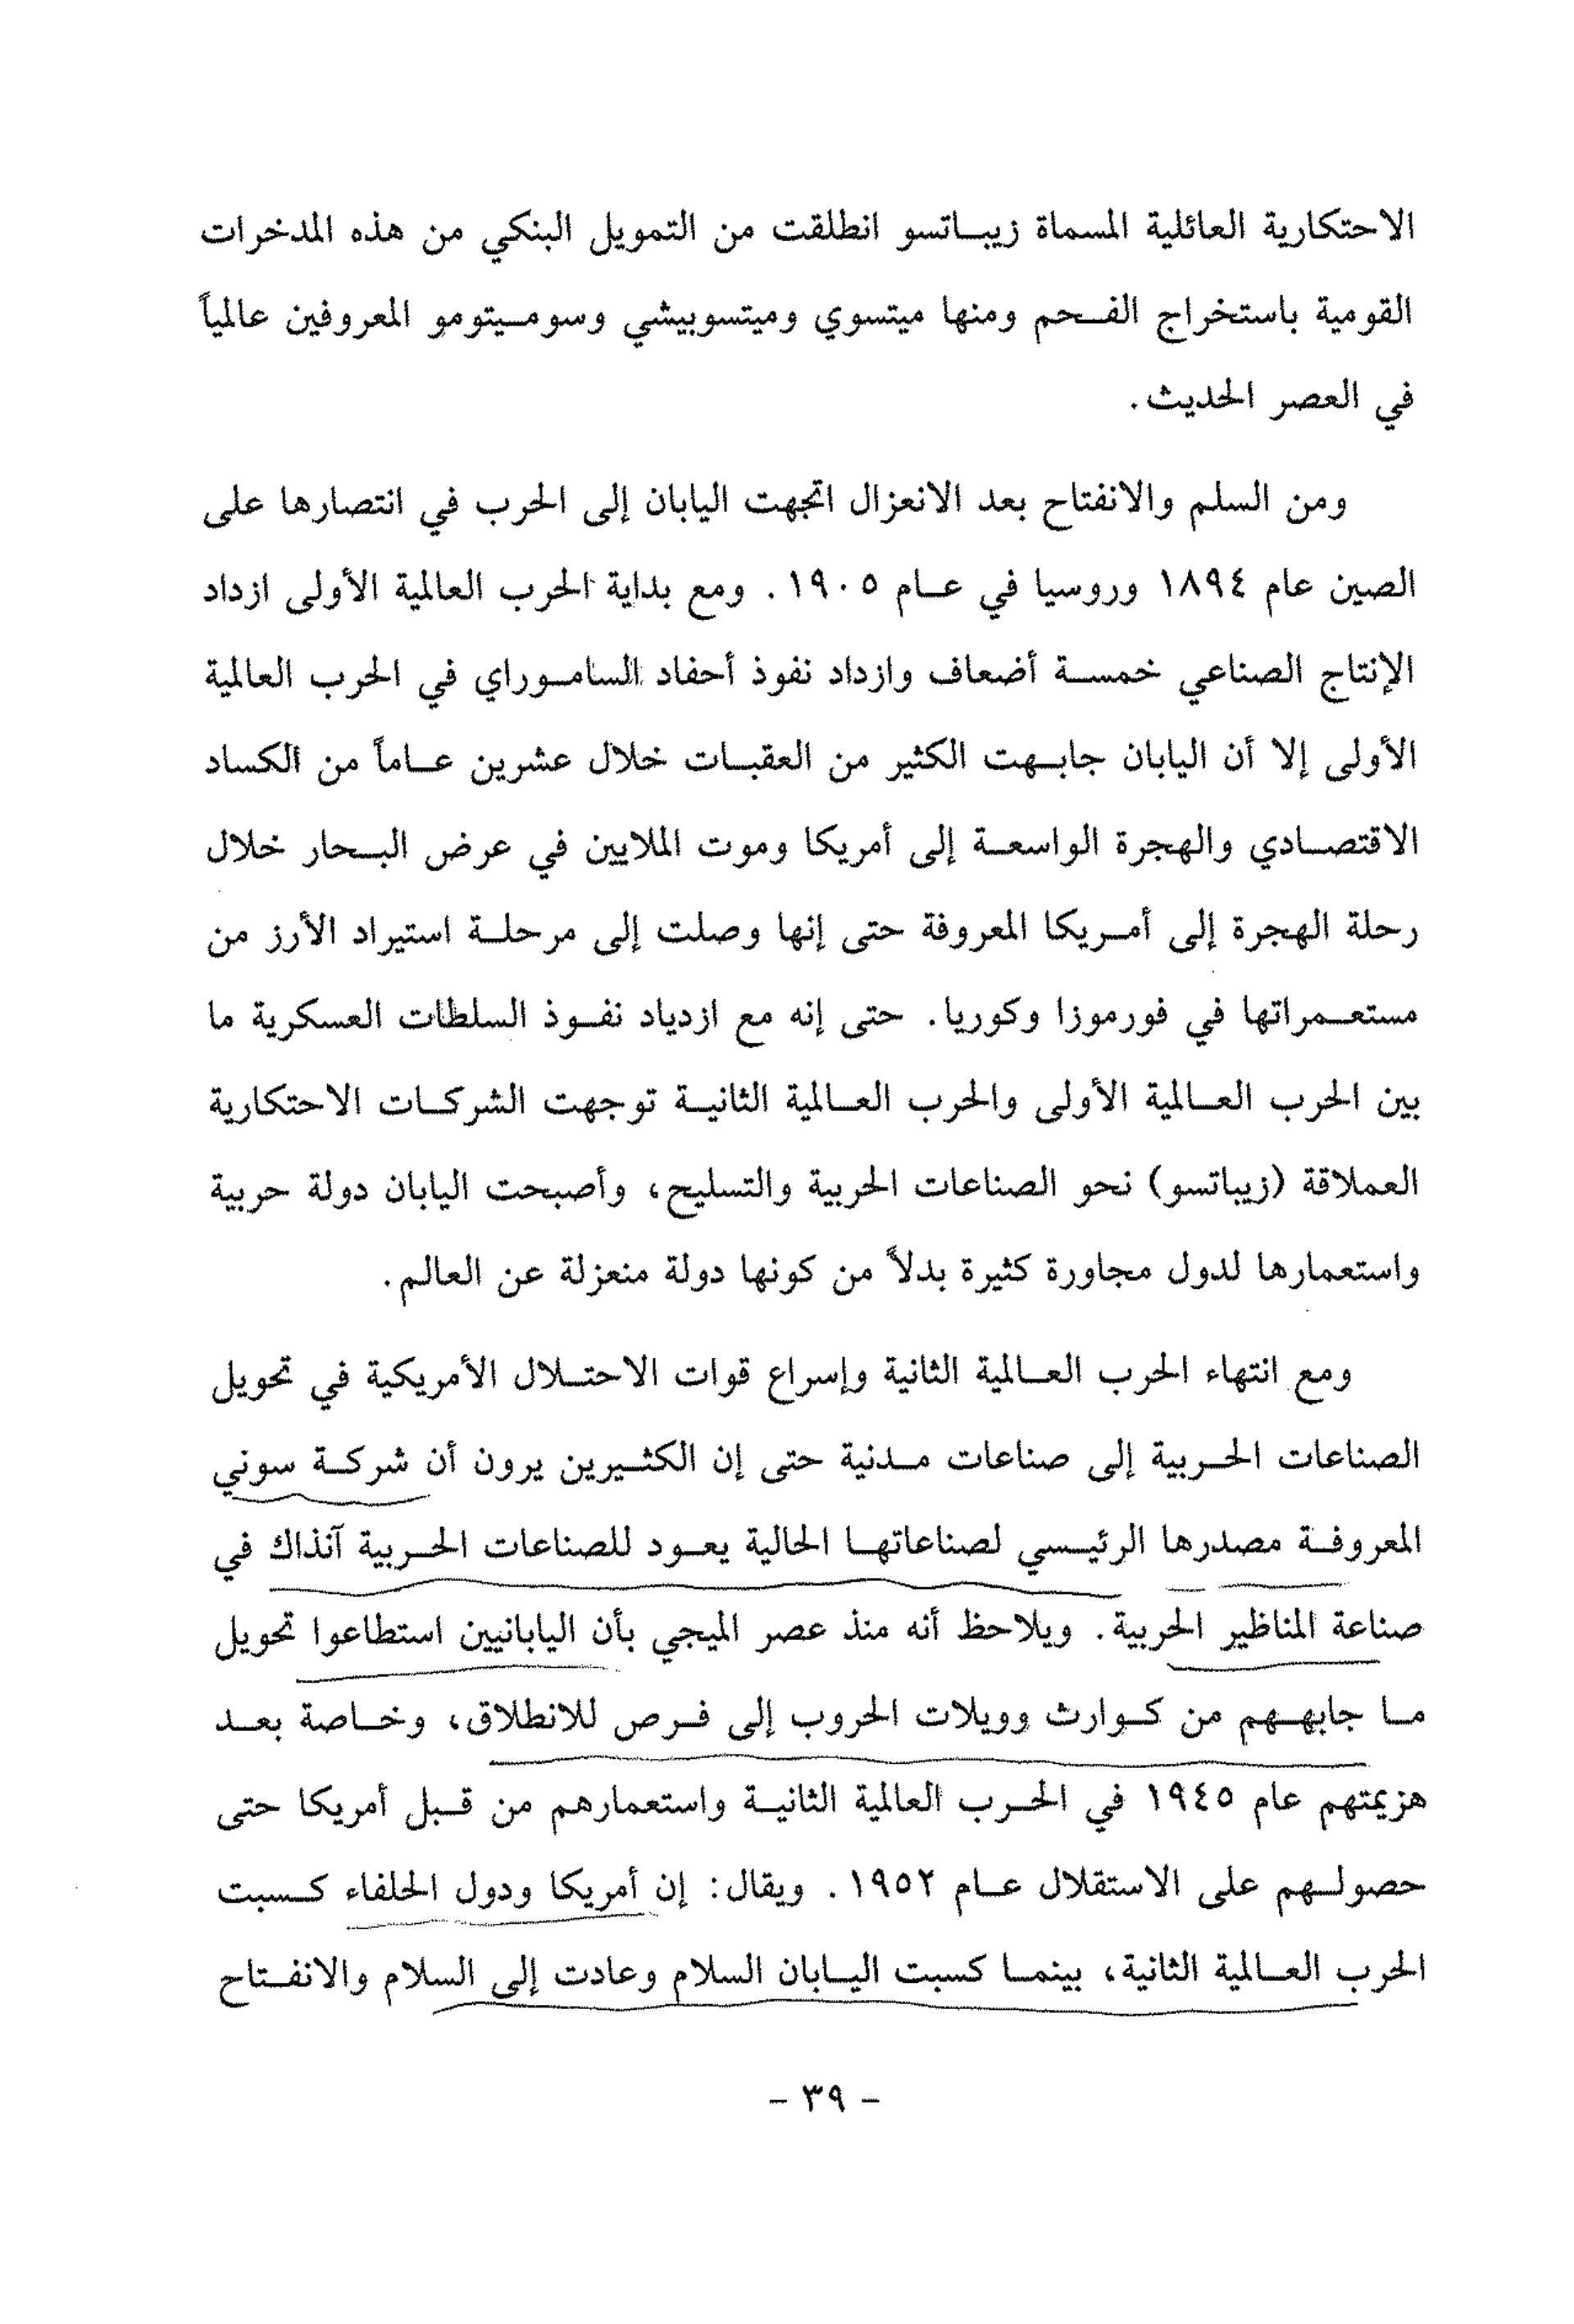 الاحتكارية العائلية المسماة زيباتسو انطلقت من التمويل البنكي من هذه المدخرات
القومية باستخراج الفحم ومنها ميتسوي وميتسوبيشي وسوميتومو المعروفين عالمياً
في العصر الحديث.
ومن السلم والانفتاح بعد الانعزال اتجهت اليابان إلى الحرب في انتصارها على
الصين عام ١٨٩٤ وروسيا في عام ١٩٠٥. ومع بداية الحرب العالمية الأولى ازداد
الإنتاج الصناعي خمسة أضعاف وازداد نفوذ أحفاد الساموراي في الحرب العالمية
الأولى إلا أن اليابان جابهت الكثير من العقبات خلال عشرين عاماً من الكساد
الاقتصادي والهجرة الواسعة إلى أمريكا وموت الملايين في عرض البحار خلال
رحلة الهجرة إلى أمريكا المعروفة حتى إنها وصلت إلى مرحلة استيراد الأرز من
مستعمراتها في فورموزا وكوريا. حتى إنه مع ازدياد نفوذ السلطات العسكرية ما
بين الحرب العالمية الأولى والحرب العالمية الثانية توجهت الشركات الاحتكارية
العملاقة (زيباتسو) نحو الصناعات الحربية والتسليح، وأصبحت اليابان دولة حربية
واستعمارها لدول مجاورة كثيرة بدلاً من كونها دولة منعزلة عن العالم.
ومع انتهاء الحرب العالمية الثانية وإسراع قوات الاحتلال الأمريكية في تحويل
الصناعات الحربية إلى صناعات مدنية حتى إن الكثيرين يرون أن شركة سوني
المعروفة مصدرها الرئيسي لصناعاتها الحالية يعود للصناعات الحربية آنذاك في
صناعة المناظير الحربية. ويلاحظ أنه منذ عصر الميجي بأن اليابانيين استطاعوا تحويل
ما جابههم من كوارث وويلات الحروب إلى فرص للانطلاق، وخاصة بعد
هزيمتهم عام ١٩٤٥ في الحرب العالمية الثانية واستعمارهم من قبل أمريكا حتى
حصولهم على الاستقلال عام ١٩٥٢. ويقال: إن أمريكا ودول الحلفاء كسبت
الحرب العالمية الثانية، بينما كسبت اليابان السلام وعادت إلى السلام والانفتاح
- ٣٩ -